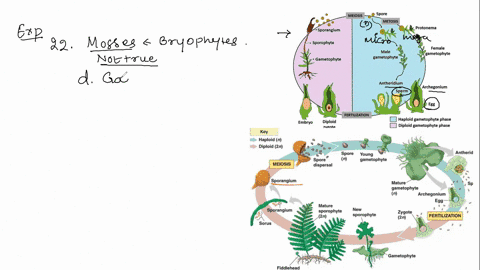 Exp
22. Mosses & Bryophytes.
Not true
d.
MEIOSIS
Spore
MITOSIS
Sporangium
Protonema
micro
mega
Sporophyte
Male gametophyte
Female gametophyte
Gametophyte
Antheridium
Archegonium
Sperm
Egg
Embryo
Diploid
FERTILIZATION
Haploid gametophyte phase
Diploid gametophyte phase
Key
Haploid (n)
Diploid (2n)
MEIOSIS
Spore dispersal
Spore (n)
Young gametophyte
Antherid
Sporangium
Mature gametophyte (n)
Archegonium
Egg
Sp
Sporangium
Mature sporophyte (2n)
New sporophyte
Zygote (2n)
FERTILIZATION
Sorus
Gametophyte
Fiddlehead